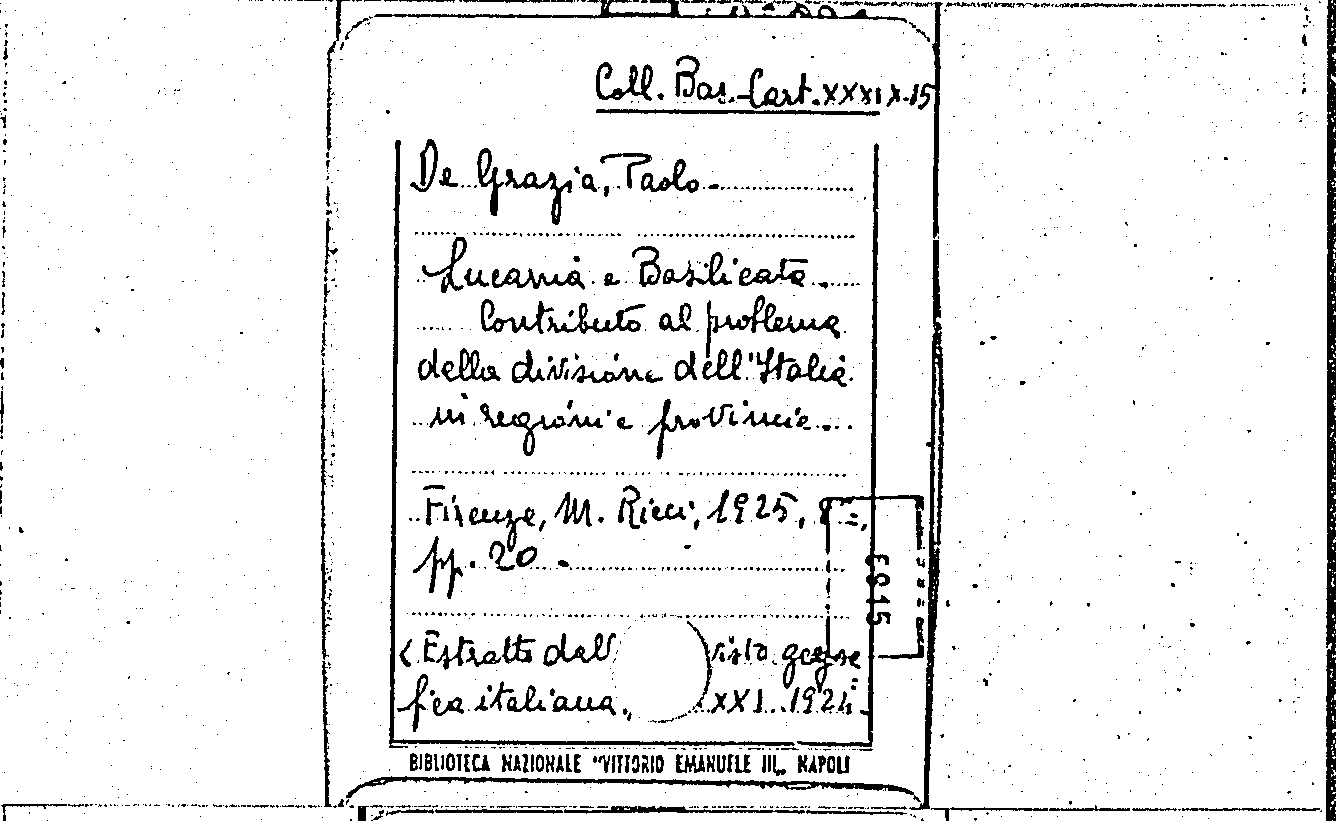 Coll. Bas. Cart. XXXIX-15
De Grazia, Paolo.
Lucania e Basilicata.
Contributo al problema
della divisione dell'Italia
in regioni e provincie.
Firenze, M. Ricci, 1925, 8°=,
pp. 20.
(Estratto dall' vista geogra=
fica italiana, XXXI. 1924.
6915
BIBLIOTECA NAZIONALE "VITTORIO EMANUELE III" NAPOLI